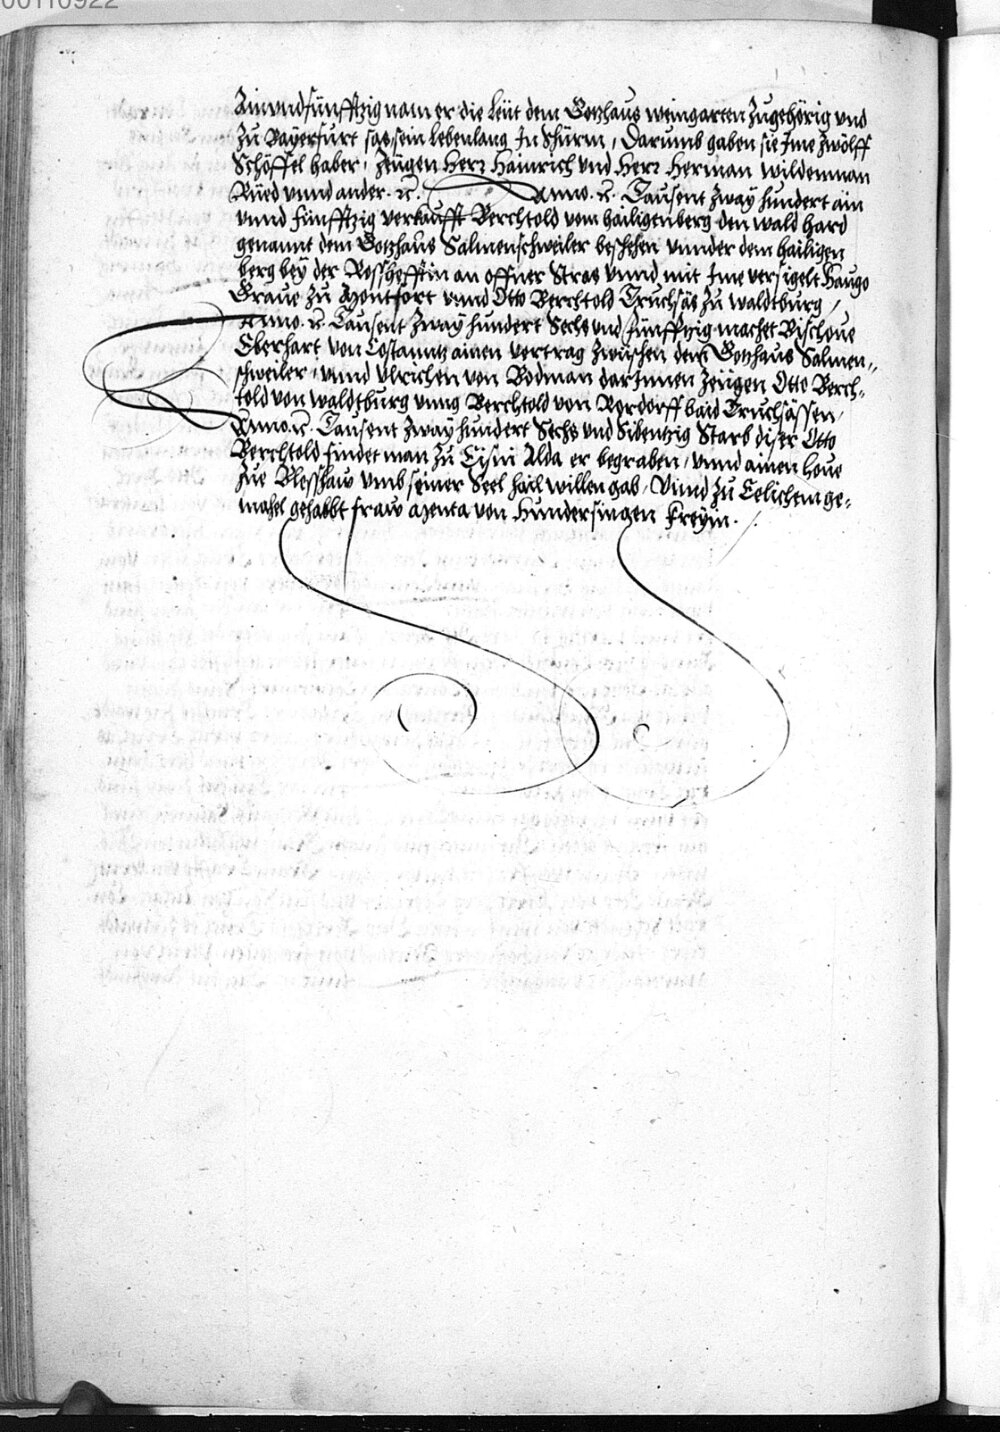 00110922
Ainundfünfftzig nam er die Leüt dem Gotzhaus weingarten zugehörig und
zu Bayerfurt sein Lebenlang In Schirm, Darumb gaben sie Ime zwölff
Schöffel haber, Zeügen Herr Hainrich und Herr Herman wildenman
Rüed unnd ander. rc. Anno. rc. Tausent zway hundert ain
unnd fünfftzig verkaufft Berchtold vom hailigenberg den wald hard
genannt dem Gotzhaus Salmenschweiler beschehen unnder dem hailigen
berg bey der an offner Stras unnd mit Ime versigelt Haugo
Graue zu Montfort unnd Otto Berchtold Truchsäs zu waldtburg /
Anno. rc. Tausent zway hundert Sechs und fünfftzig machet Bischoue
Eberhart von Costanntz ainen vertrag zwüschen dem Gotzhaus Salmen=
schweiler, unnd Ulrichen von Bodman darInnen Zeügen Otto Berch=
told von waldtburg unnd Berchtold von Rordorff baid Truchsässen /
Anno. rc. Tausent zway hundert Sechs und Sibentzig Starb diser Otto
Berchtold findet man zu Eisni Alda er begraben / unnd ainen Houe
zue umb seiner Seel hail willen gab, Unnd zu Eelichem ge=
mahel gehabbt fraw Menta von Hundersingen Freyin.